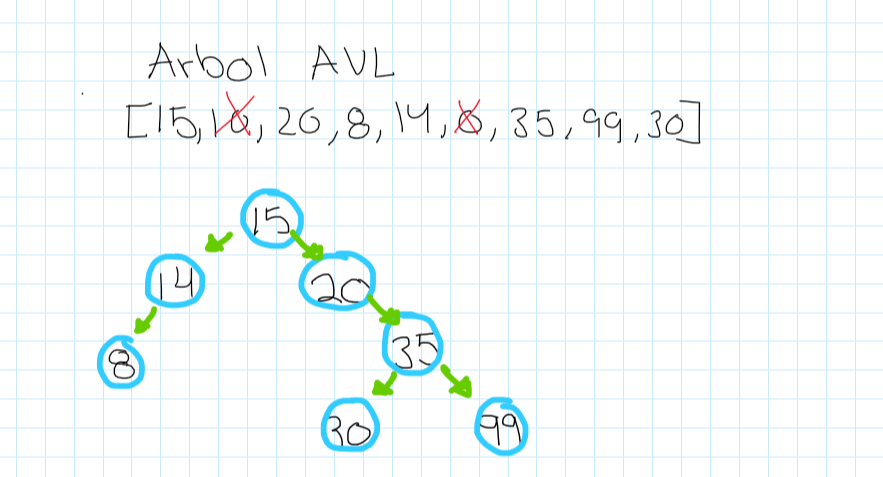 Arbol AVL
[15, 10, 20, 8, 14, 6, 35, 99, 30]
15
14 20
8 35
30 99